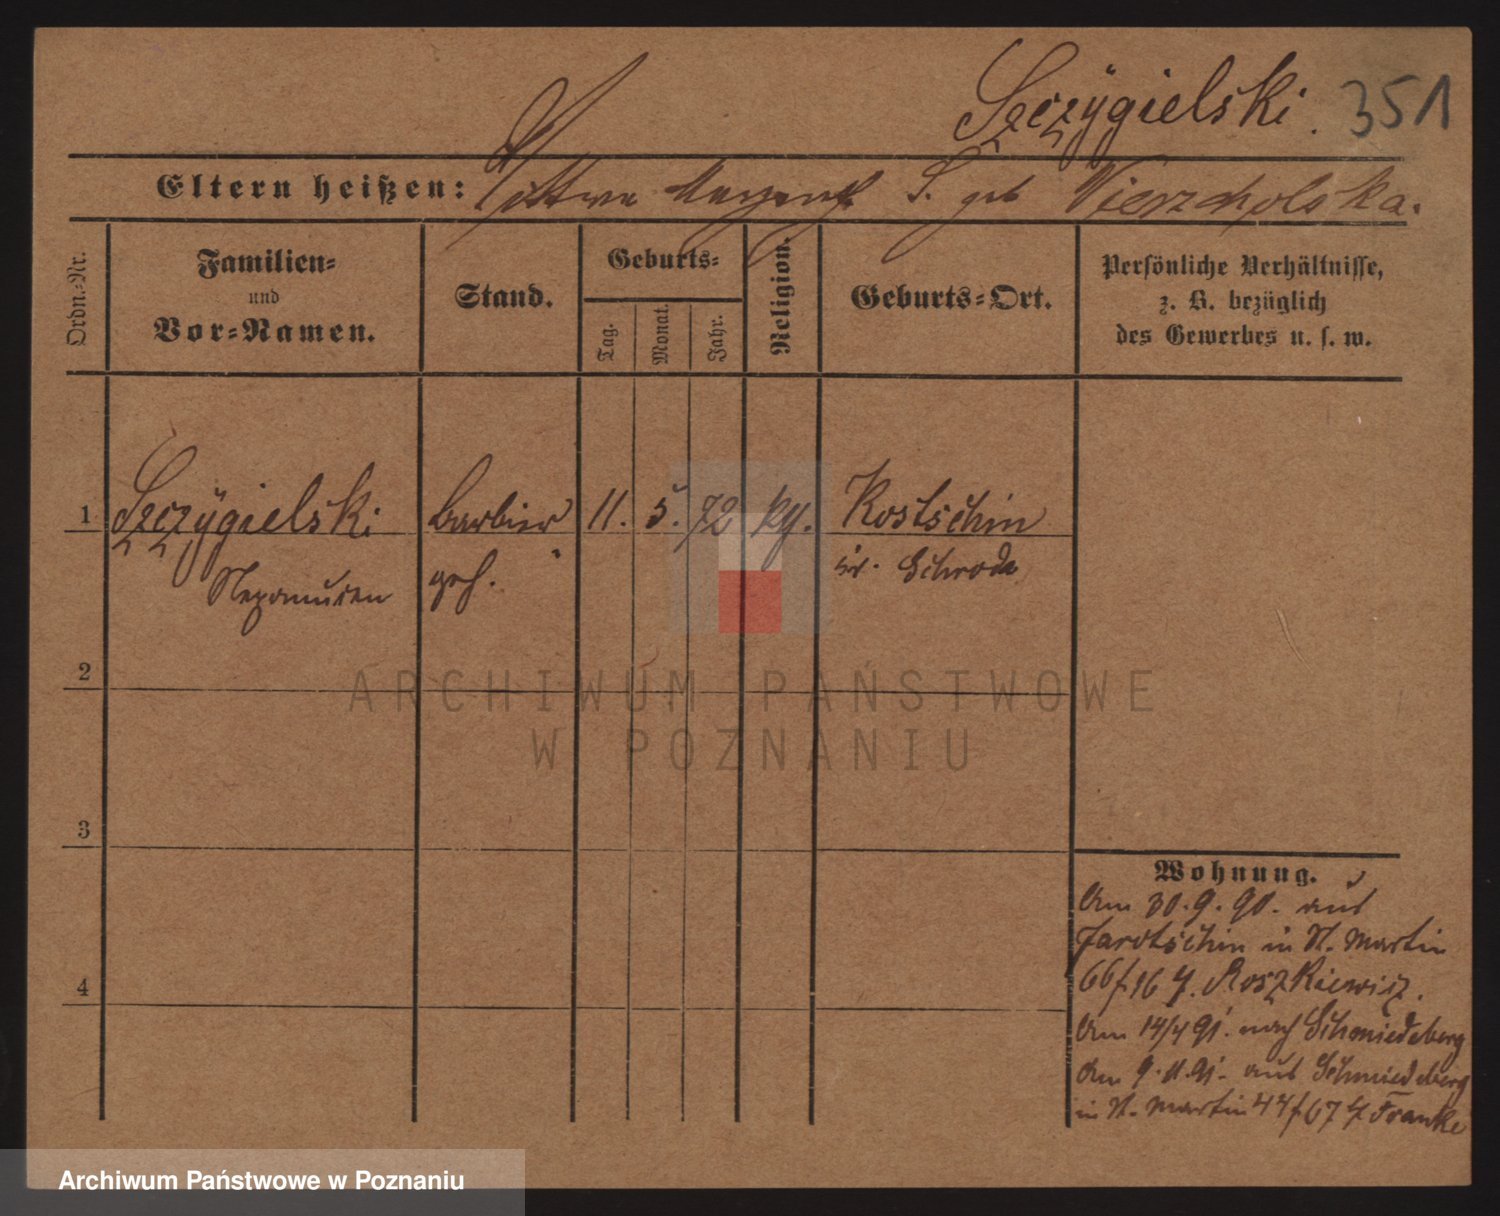 Szczygielski. 351
Eltern heißen: S. geb Wierzcholska.
Ordn.-Nr.
Familien-
und
Vor-Namen.
Stand.
Geburts-
Tag.
Monat.
Jahr.
Religion.
Geburts-Ort.
Persönliche Verhältnisse,
z. B. bezüglich
des Gewerbes u. s. w.
1 Szczygielski Barbier 11. 5. 72 Kostschin
Nepomucen geh. Kr. Schroda
2
3
4
Wohnung.
Am 30.9.90. aus
Jarotschin in St. Martin
66/16 Roszkiewicz.
Am 14/4 91. nach Schmiedeberg
Am 9. 91. aus Schmiedeberg
in St. Martin 67 Franke
ARCHIWUM PAŃSTWOWE
W POZNANIU
Archiwum Państwowe w Poznaniu